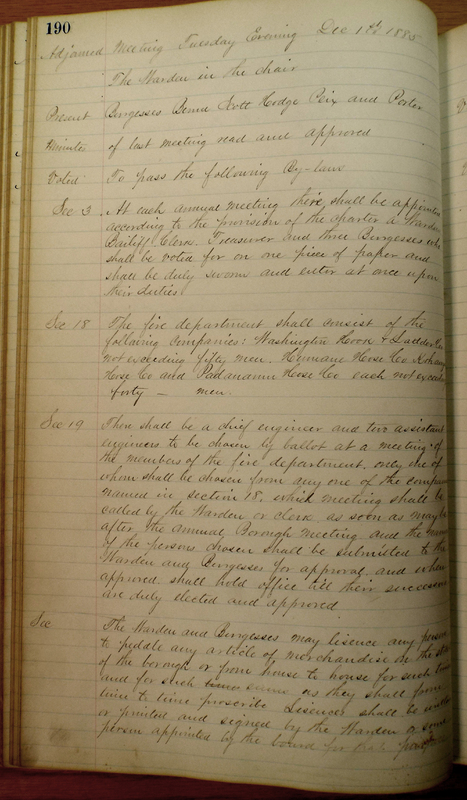 190
Adjourned Meeting Tuesday Evening Dec 1st 1885
The Warden in the chair
Present Burgesses Scott Hodge and Porter
Minutes of last meeting read and approved
Voted To pass the following By-laws
Sec 3 At each annual meeting there shall be appointed
according to the provision of the charter a Warden
Bailiff, Clerk, Treasurer and three Burgesses who
shall be voted for on one piece of paper and
shall be duly sworn and enter at once upon
their duties
Sec 18 The fire department shall consist of the
following companies: Washington Hook & Ladder
not exceeding fifty men, Humane Hose Co
Hose Co and Padanaram Hose Co each not exceeding
forty — men.
Sec 19 There shall be a chief engineer and two assistant
engineers to be chosen by ballot at a meeting of
the members of the fire department, only one of
whom shall be chosen from any one of the companies
named in section 18, which meeting shall be
called by the Warden or clerk as soon as may be
after the annual Borough meeting and the names
of the persons chosen shall be submitted to the
Warden and Burgesses for approval and when
approved shall hold office till their successors
are duly elected and approved
Sec The Warden and Burgesses may lisence any person
to peddle any article of merchandise on the streets
of the borough or from house to house for such time
and for such sums as they shall from
time to time proscribe Lisences shall be written
or printed and signed by the Warden or some
person appointed by the board for that purpose